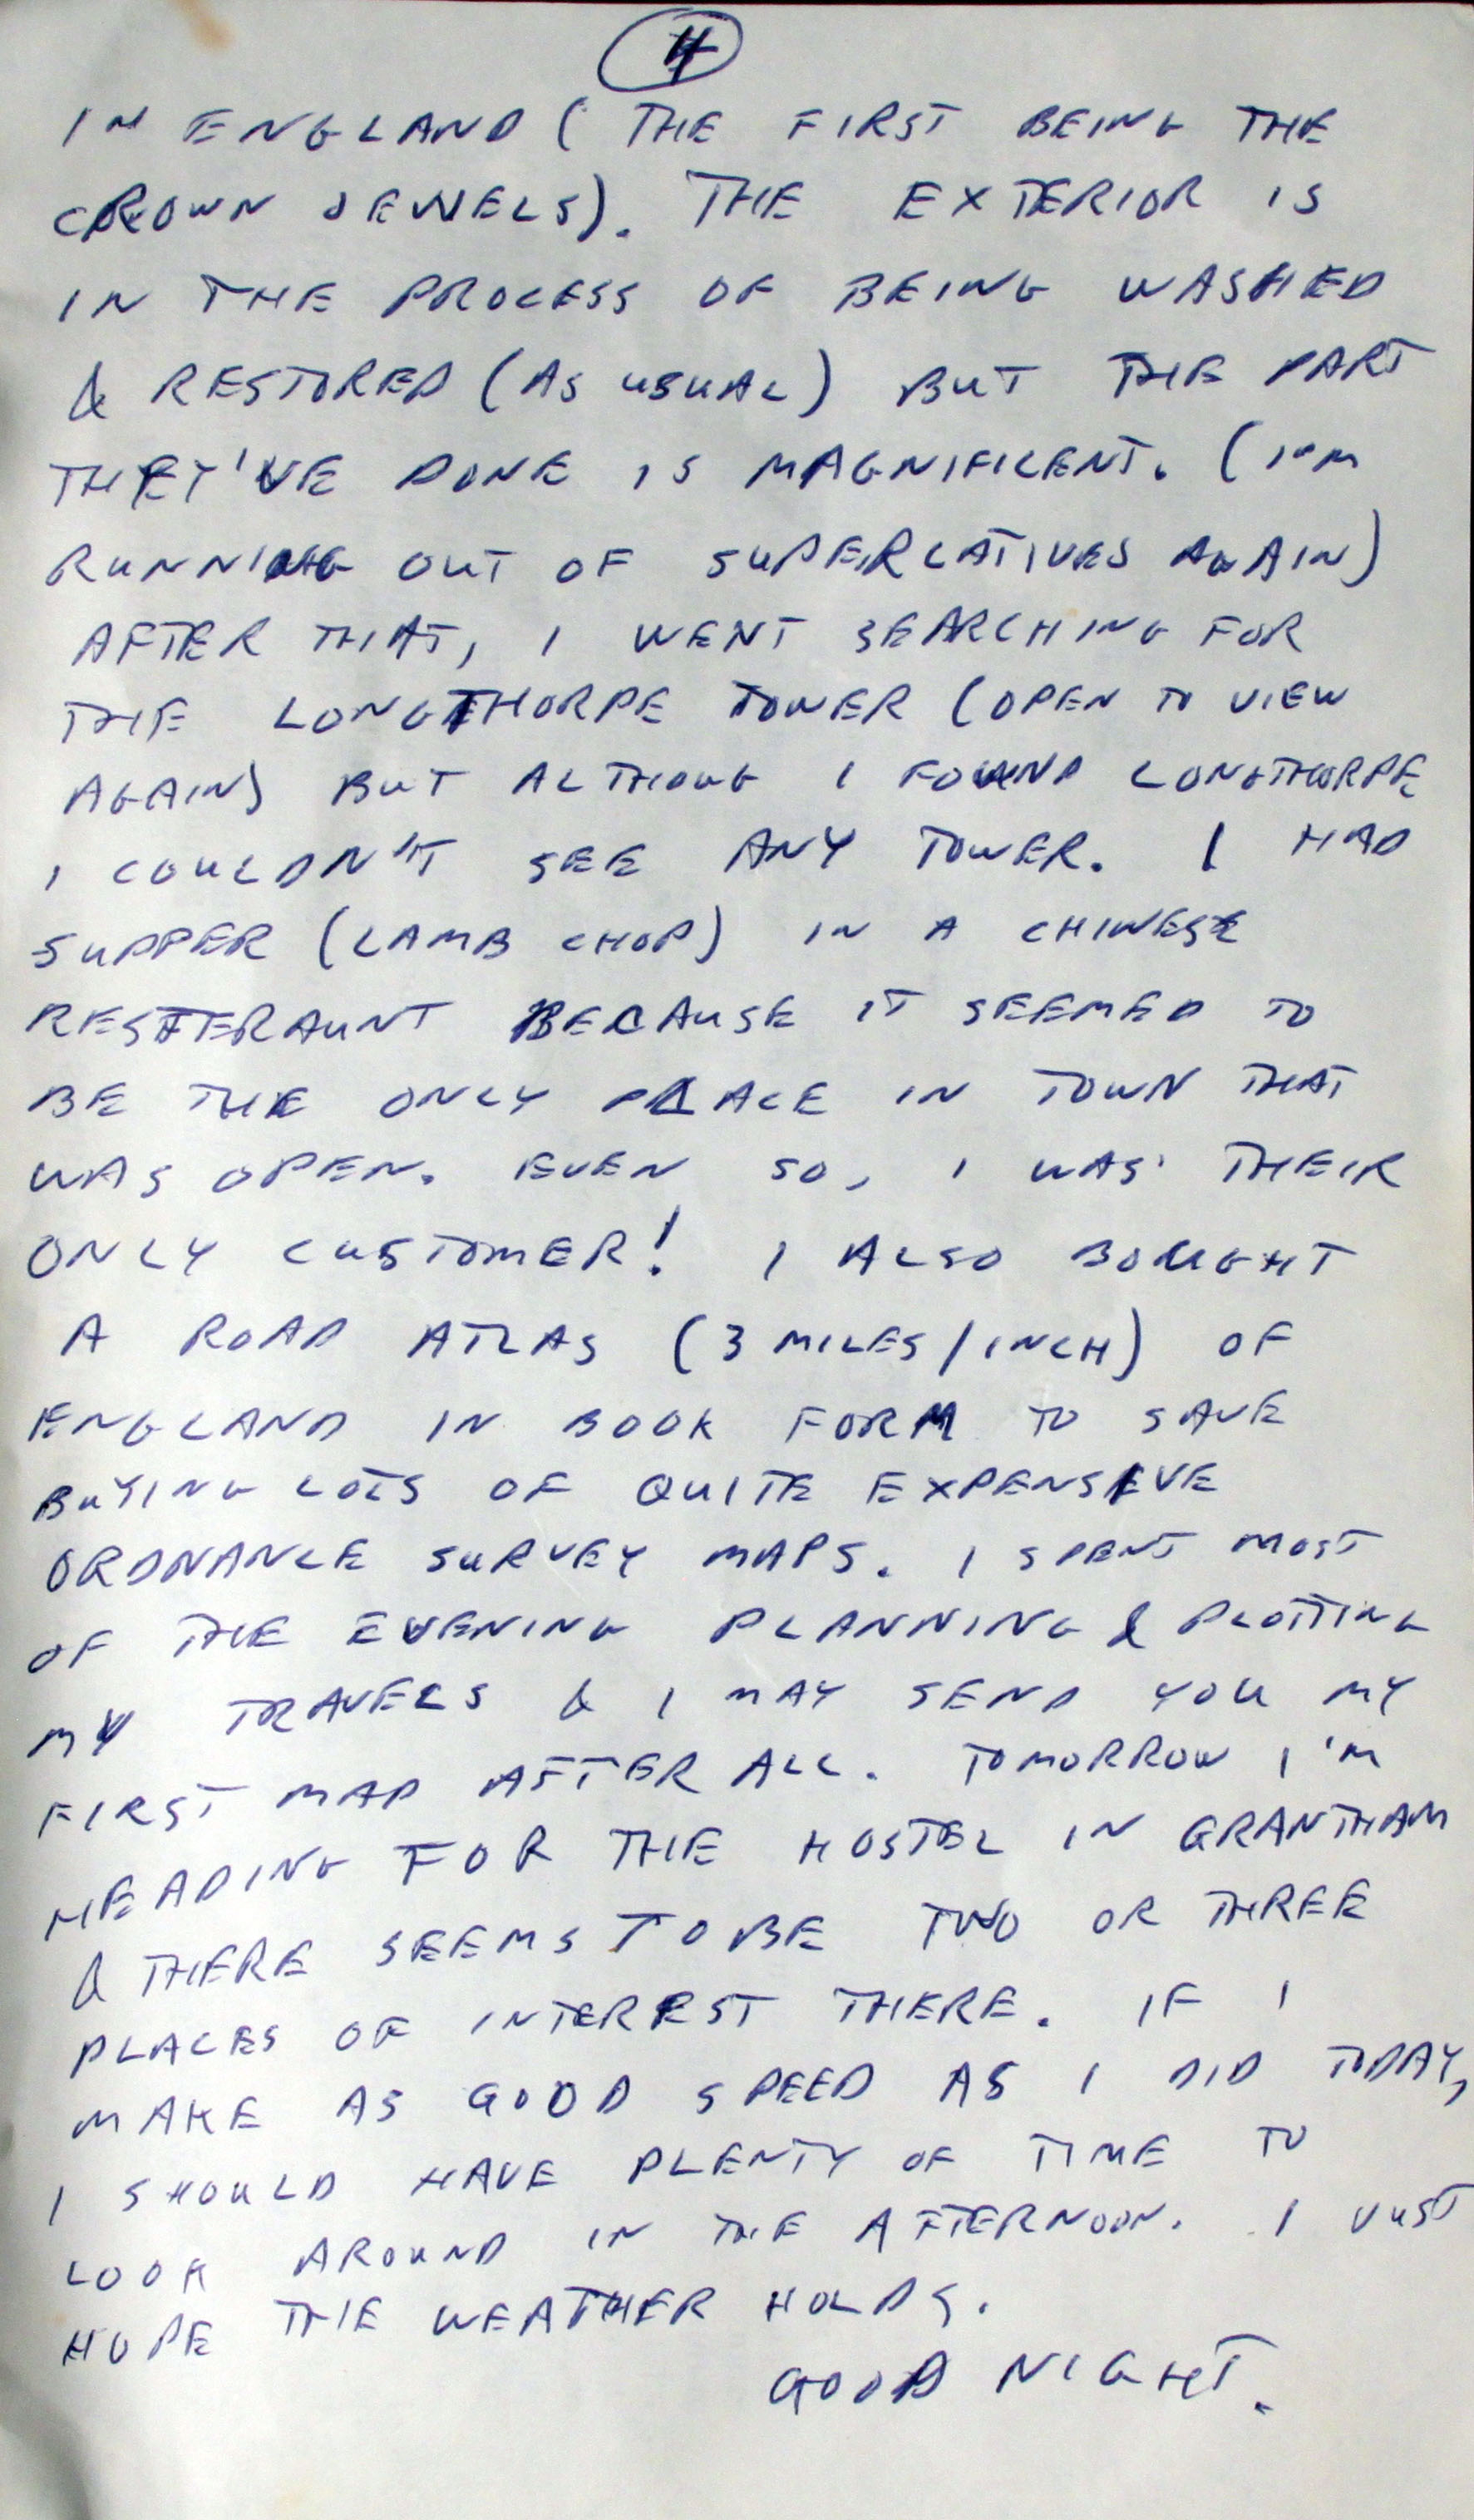 4
IN ENGLAND (THE FIRST BEING THE
CROWN JEWELS). THE EXTERIOR IS
IN THE PROCESS OF BEING WASHED
& RESTORED (AS USUAL) BUT THE PART
THEY'VE DONE IS MAGNIFICENT. (I'M
RUNNING OUT OF SUPERLATIVES AGAIN)
AFTER THAT, I WENT SEARCHING FOR
THE LONGTHORPE TOWER (OPEN TO VIEW
AGAIN) BUT ALTHOUG I FOUND LONGTHORPE
I COULDN'T SEE ANY TOWER. I HAD
SUPPER (LAMB CHOP) IN A CHINESE
RESTERAUNT BECAUSE IT SEEMED TO
BE THE ONLY PLACE IN TOWN THAT
WAS OPEN. EVEN SO, I WAS THEIR
ONLY CUSTOMER! I ALSO BOUGHT
A ROAD ATLAS (3 MILES/INCH) OF
ENGLAND IN BOOK FORM TO SAVE
BUYING LOTS OF QUITE EXPENSIVE
ORDNANCE SURVEY MAPS. I SPENT MOST
OF THE EVENING PLANNING & PLOTTING
MY TRAVELS & I MAY SEND YOU MY
FIRST MAP AFTER ALL. TOMORROW I'M
HEADING FOR THE HOSTEL IN GRANTHAM
& THERE SEEMS TO BE TWO OR THREE
PLACES OF INTEREST THERE. IF I
MAKE AS GOOD SPEED AS I DID TODAY,
I SHOULD HAVE PLENTY OF TIME TO
LOOK AROUND IN THE AFTERNOON. I JUST
HOPE THE WEATHER HOLDS.
GOOD NIGHT.